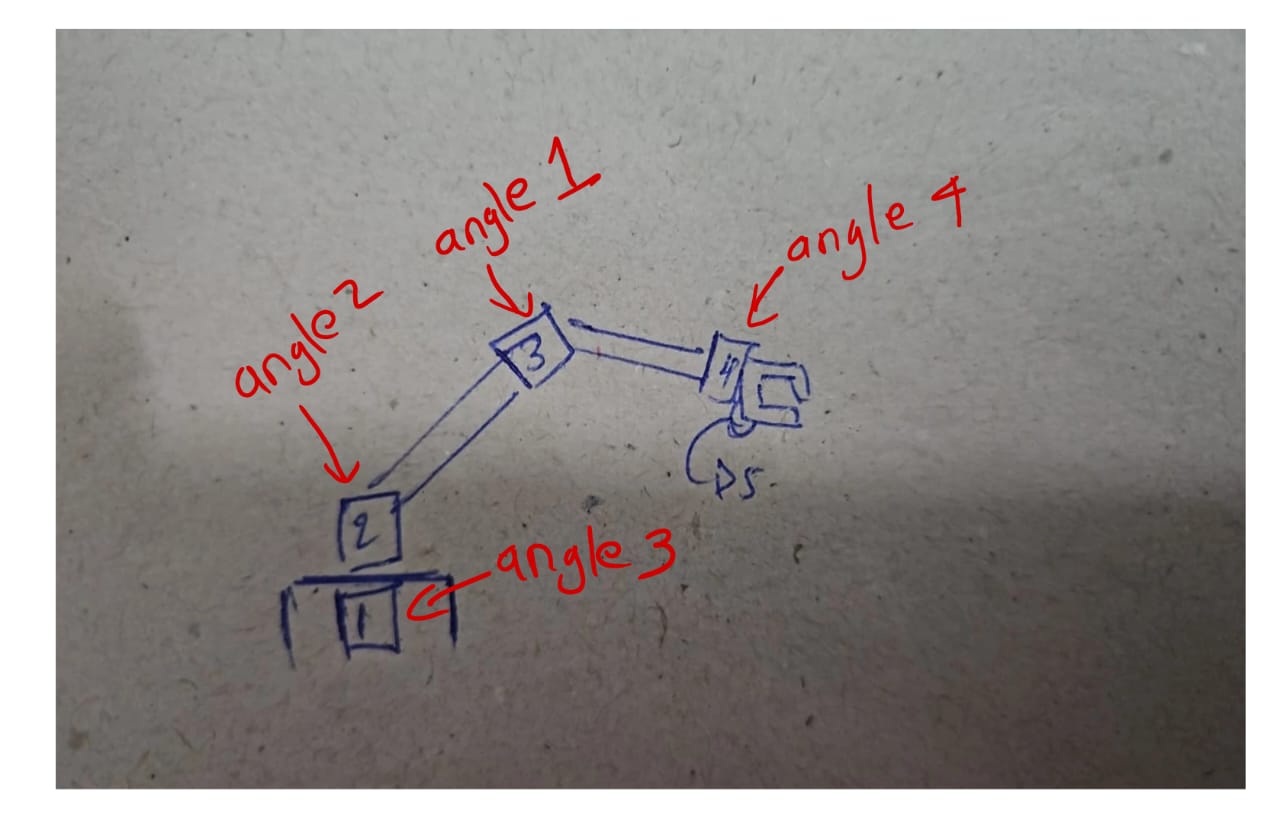 angle 1
angle 4
angle 2
3
4
2
angle 3
1
DS